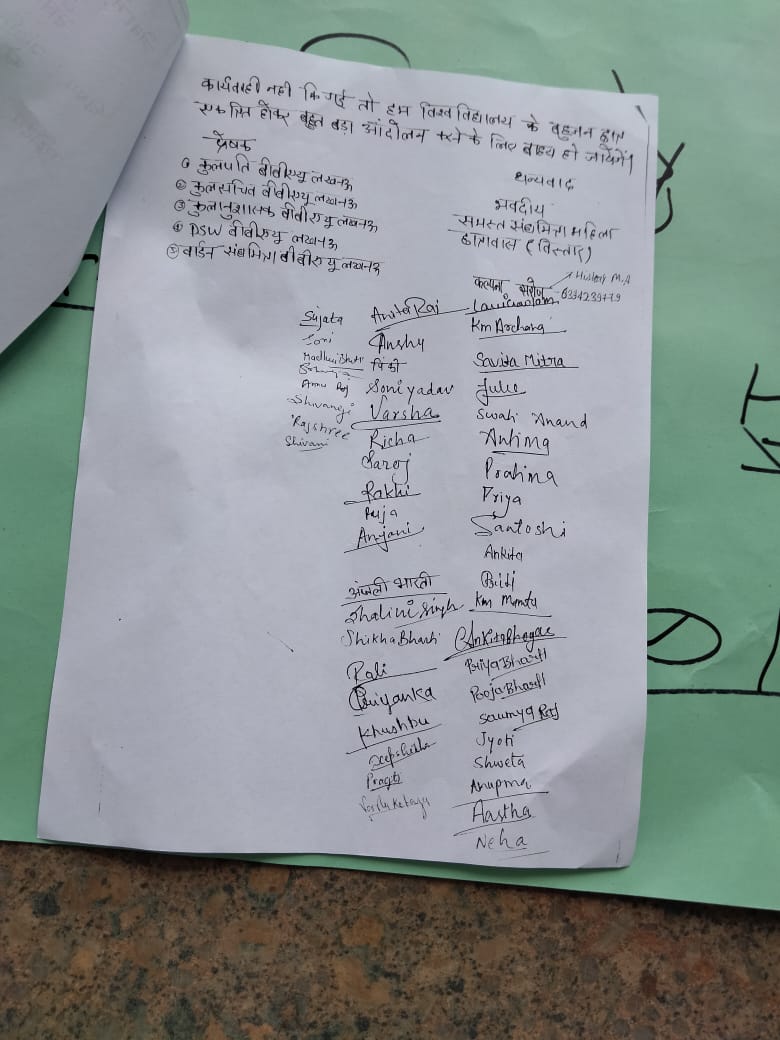 कार्यवाही नही कि गई तो हम विश्वविद्यालय के बहुजन छात्र
एकत्रित होकर बहुत बड़ा आंदोलन करने के लिए बाध्य हो जायेगें।
प्रेषक
① कुलपति बीबीएयू लखनऊ
② कुलसचिव बीबीएयू लखनऊ
③ कुलानुशासक बीबीएयू लखनऊ
④ DSW बीबीएयू लखनऊ
⑤ वार्डन संघमित्रा बीबीएयू लखनऊ
धन्यवाद
भवदीय
समस्त संघमित्रा महिला
छात्रावास (विस्तार)
कल्पना सरोज History M.A
Sujata
Soni
Madhu Bharti
Annu Raj
Shivangi
Rajshree
Shivani
Anita Raj
Anshu
पिंकी
Soni yadav
Varsha
Richa
Saroj
Rakhi
Puja
Anjani
अंजली भारती
Shalini Singh
Shikha Bharti
Rali
Priyanka
Khushbu
Deepshikha
Pragti
Km Archana
Savita Mitra
Julie
Swati Anand
Antima
Pratima
Priya
Santoshi
Ankita
Priti
Km Mamta
Ankita Bhagat
Priya Bharti
Pooja Bharti
Saumya Raj
Jyoti
Shweta
Anupma
Aastha
Neha